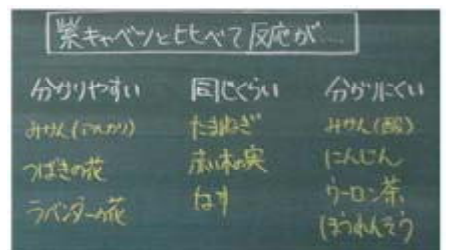 紫キャベツとくらべて反応が…
分かりやすい
みかん(アルカリ)
つばきの花
ラベンダーの花
同じくらい
たまねぎ
赤い木の実
なす
分かりにくい
みかん(酸)
にんじん
ウーロン茶
ほうれんそう